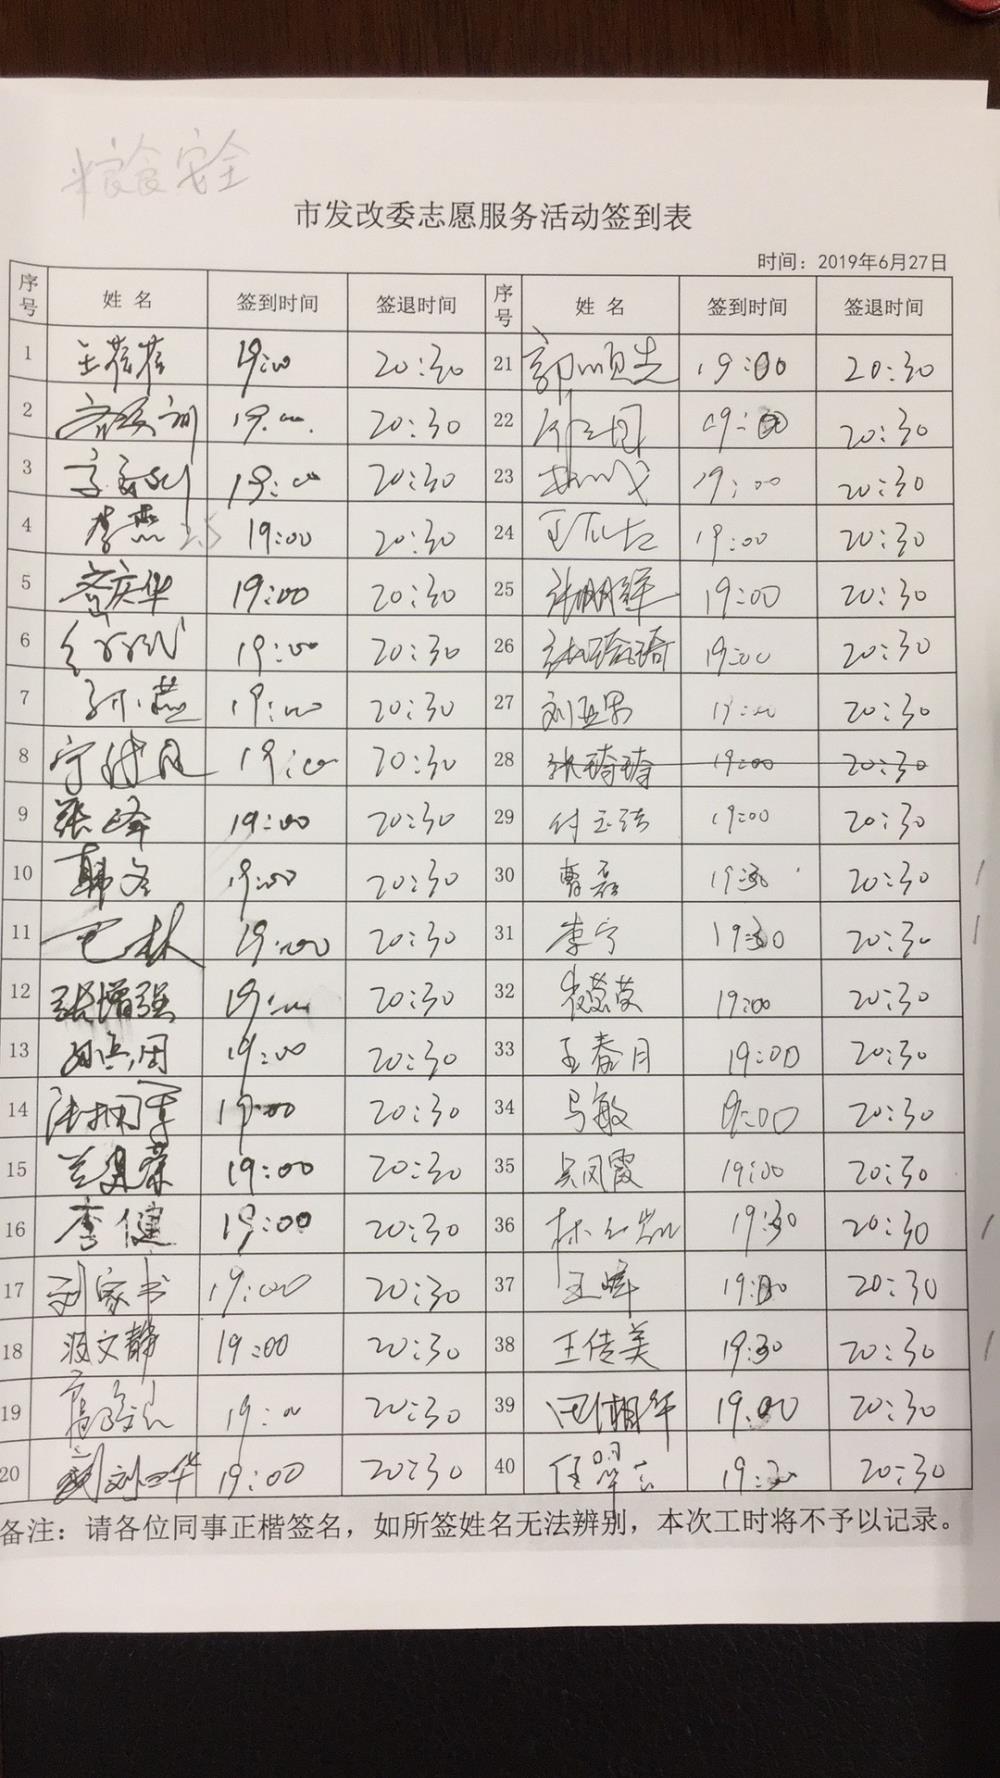 粮食安全
市发改委志愿服务活动签到表
时间：2019年6月27日
序号 姓 名 签到时间 签退时间 序号 姓 名 签到时间 签退时间
1 王蓓蓓 19:00 20:30 21 郭顺先 19:00 20:30
2 19:00 20:30 22 19:00 20:30
3 19:00 20:30 23 19:00 20:30
4 李燕 19:00 20:30 24 19:00 20:30
5 齐庆华 19:00 20:30 25 19:00 20:30
6 19:00 20:30 26 19:00 20:30
7 孙燕 19:00 20:30 27 刘亚男 19:00 20:30
8 19:00 20:30 28 张琦琦 19:00 20:30
9 张峰 19:00 20:30 29 付玉洁 19:00 20:30
10 韩冬 19:00 20:30 30 曹磊 19:30 20:30
11 巴林 19:00 20:30 31 李宁 19:30 20:30
12 张增强 19:00 20:30 32 19:00 20:30
13 19:00 20:30 33 王春月 19:00 20:30
14 19:00 20:30 34 马敏 19:00 20:30
15 19:00 20:30 35 吴凤霞 19:00 20:30
16 李健 19:00 20:30 36 19:30 20:30
17 刘家书 19:00 20:30 37 王峰 19:00 20:30
18 冯文静 19:00 20:30 38 王传美 19:30 20:30
19 19:00 20:30 39 19:00 20:30
20 19:00 20:30 40 19:30 20:30
备注：请各位同事正楷签名，如所签姓名无法辨别，本次工时将不予以记录。